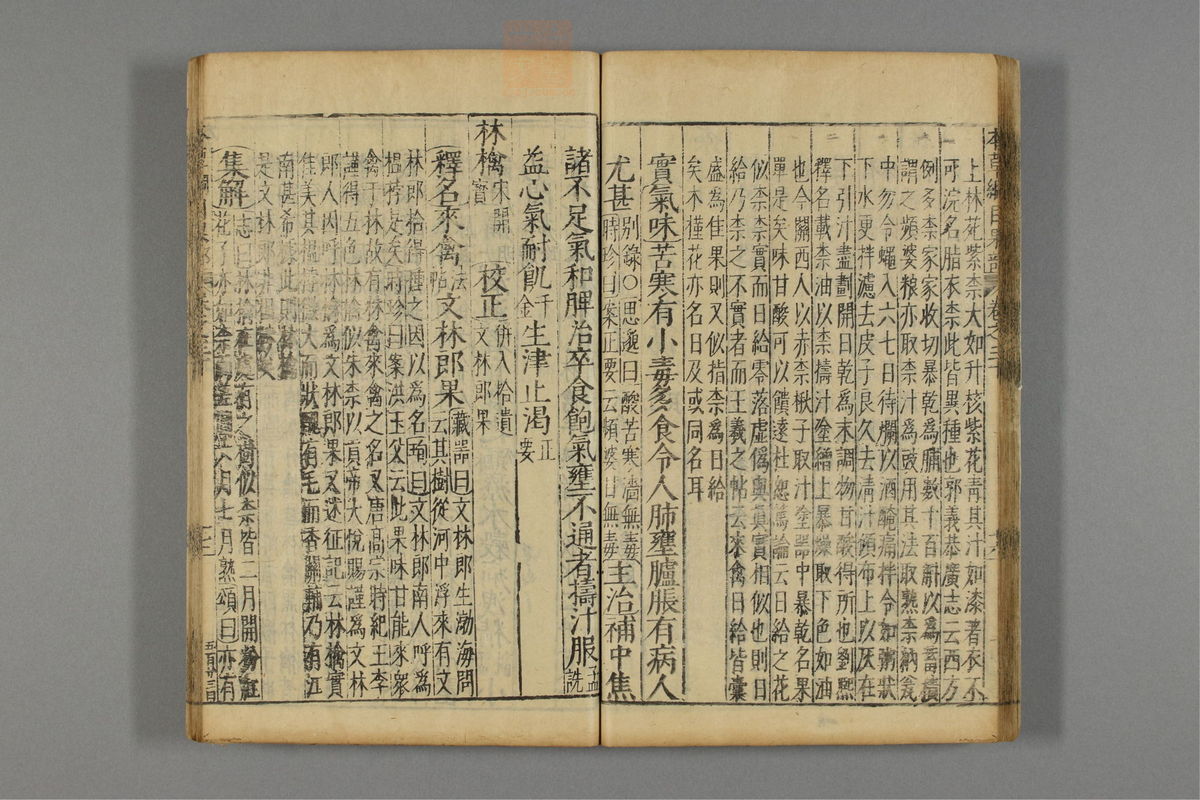 上林苑紫柰大如升核紫花青其汁如漆著衣不
可浣名脂衣柰此皆異種也郭義恭廣志云西方
例多柰家家收切暴乾為脯數十百斛以為蓄積
謂之頻婆粮亦取柰汁為豉用其法取熟柰納瓮
中勿令蠅入六七日待爛以酒醃痛拌令如粥狀
下水更拌濾去皮子良久去清汁傾布上以灰在
下引汁盡劃開日乾為末調物甘酸得所也劉熙
釋名載柰油以柰擣汁塗繒上暴燥取下色如油
也今關西人以赤柰楸子取汁塗器中暴乾名果
單是矣味甘酸可以饋遠杜恕篤論云日給之花
似柰柰實而日給零落虛偽與真實相似也則日
給乃柰之不實者而王羲之帖云來禽日給皆囊
盛為佳果則又似指柰為日給
矣木槿花亦名日及或同名耳
實氣味苦寒有小毒多食令人肺壅臚脹有病人
尤甚別錄○思邈曰酸苦寒濇無毒
時珍曰案正要云頻婆甘無毒主治補中焦
諸不足氣和脾治卒食飽氣壅不通者擣汁服孟詵
益心氣耐飢千金生津止渴正要
林檎宋開寶校正併入拾遺
文林郎果
釋名來禽法帖文林郎果藏器曰文林郎生渤海間
云其樹從河中浮來有文
林郎拾得種之因以為名珣曰文林郎南人呼為
榲桲是矣時珍曰案洪玉父云此果味甘能來眾
禽于林故有林禽來禽之名又唐高宗時紀王李
謹得五色林檎似朱柰以貢帝大悅賜謹為文林
郎人因呼林檎為文林郎果又述征記云林檎實
佳美其榲桲微大而狀醜有毛而香關輔乃有江
南甚希據此則
是文林郎
集解志曰林檎
花了亦
似柰皆二月開粉紅
月熟頌曰亦有